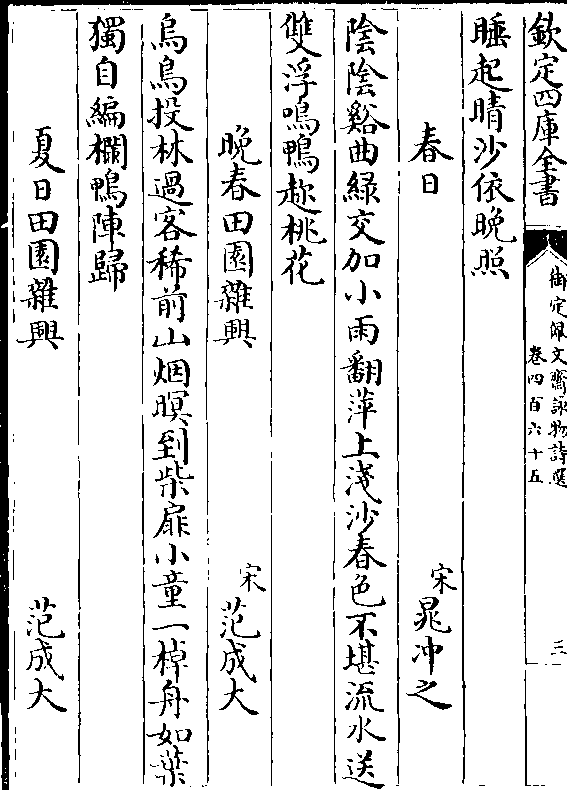 欽定四庫全書
御定佩文齋詠物詩選
卷四百六十五
三
睡起晴沙依晚照
春日
宋
晁冲之
陰陰谿曲綠交加小雨翻萍上淺沙春色不堪流水送
雙浮鳴鴨趂桃花
晚春田園雜興
宋
范成大
烏鳥投林過客稀前山烟暝到柴扉小童一棹舟如葉
獨自編欄鴨陣歸
夏日田園雜興
范成大